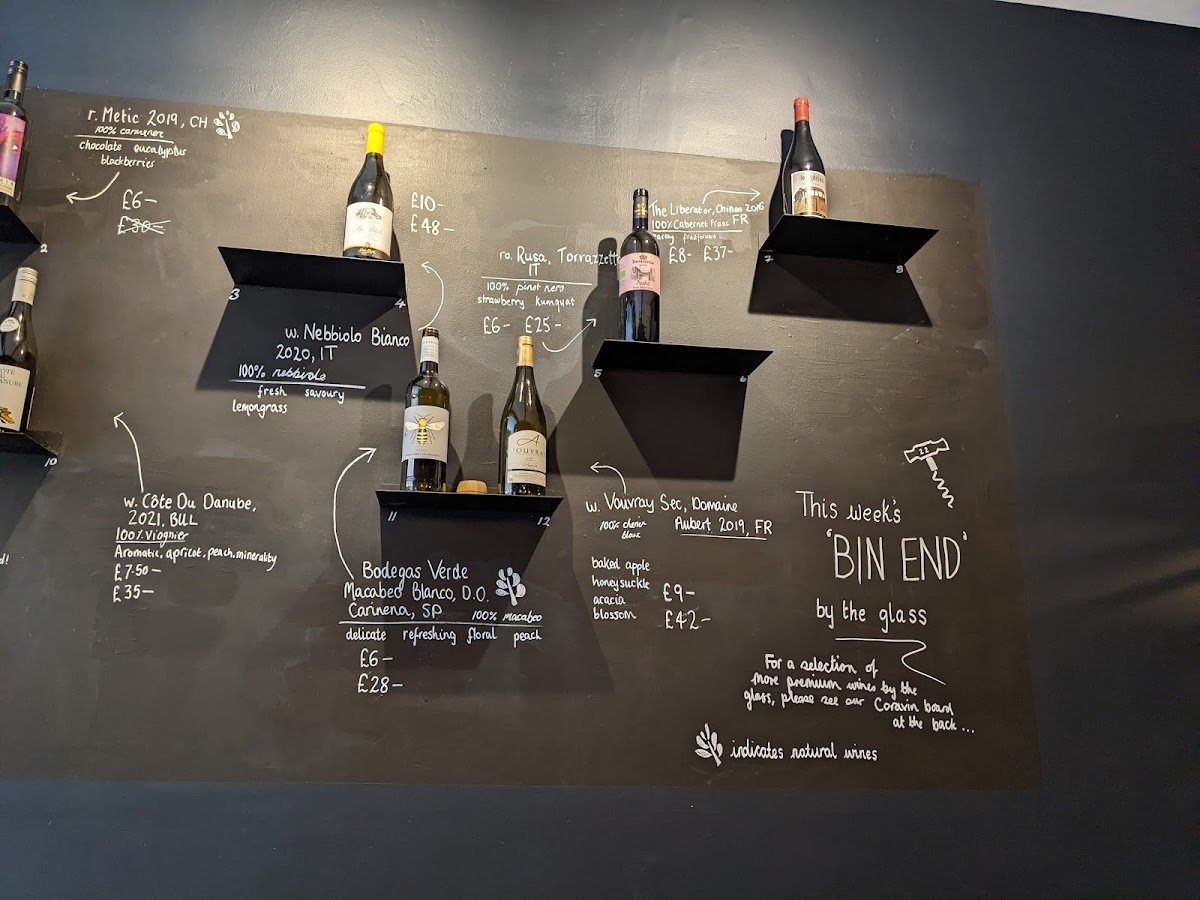 r. Metic 2019, CH
100% carmener
chocolate eucalyptus
blackberries
£6-
£30-
2
£10-
£48-
3
4
w. Nebbiolo Bianco
2020, IT
100% nebbiolo
fresh savoury
lemongrass
ro. Rusa, Torrazzetta
IT
100% pinot nero
strawberry kumquat
£6- £25-
5
6
The Liberator, Chinon 2016
100% Cabernet Franc FR
fruitforward
£8- £37-
7
8
10
w. Côte Du Danube,
2021, BUL
100% Viognier
Aromatic, apricot, peach, minerality
£7.50-
£35-
d!
11
12
Bodegas Verde
Macabeo Blanco, D.O.
Carinena, SP 100% macabeo
delicate refreshing floral peach
£6-
£28-
VOUVRAY
w. Vouvray Sec, Domaine
Aubert 2019, FR
100% chenin
blanc
baked apple
honeysuckle
acacia
blossom
£9-
£42-
This week's
'BIN END'
by the glass
For a selection of
more premium wines by the
glass, please see our Coravin board
at the back...
indicates natural wines